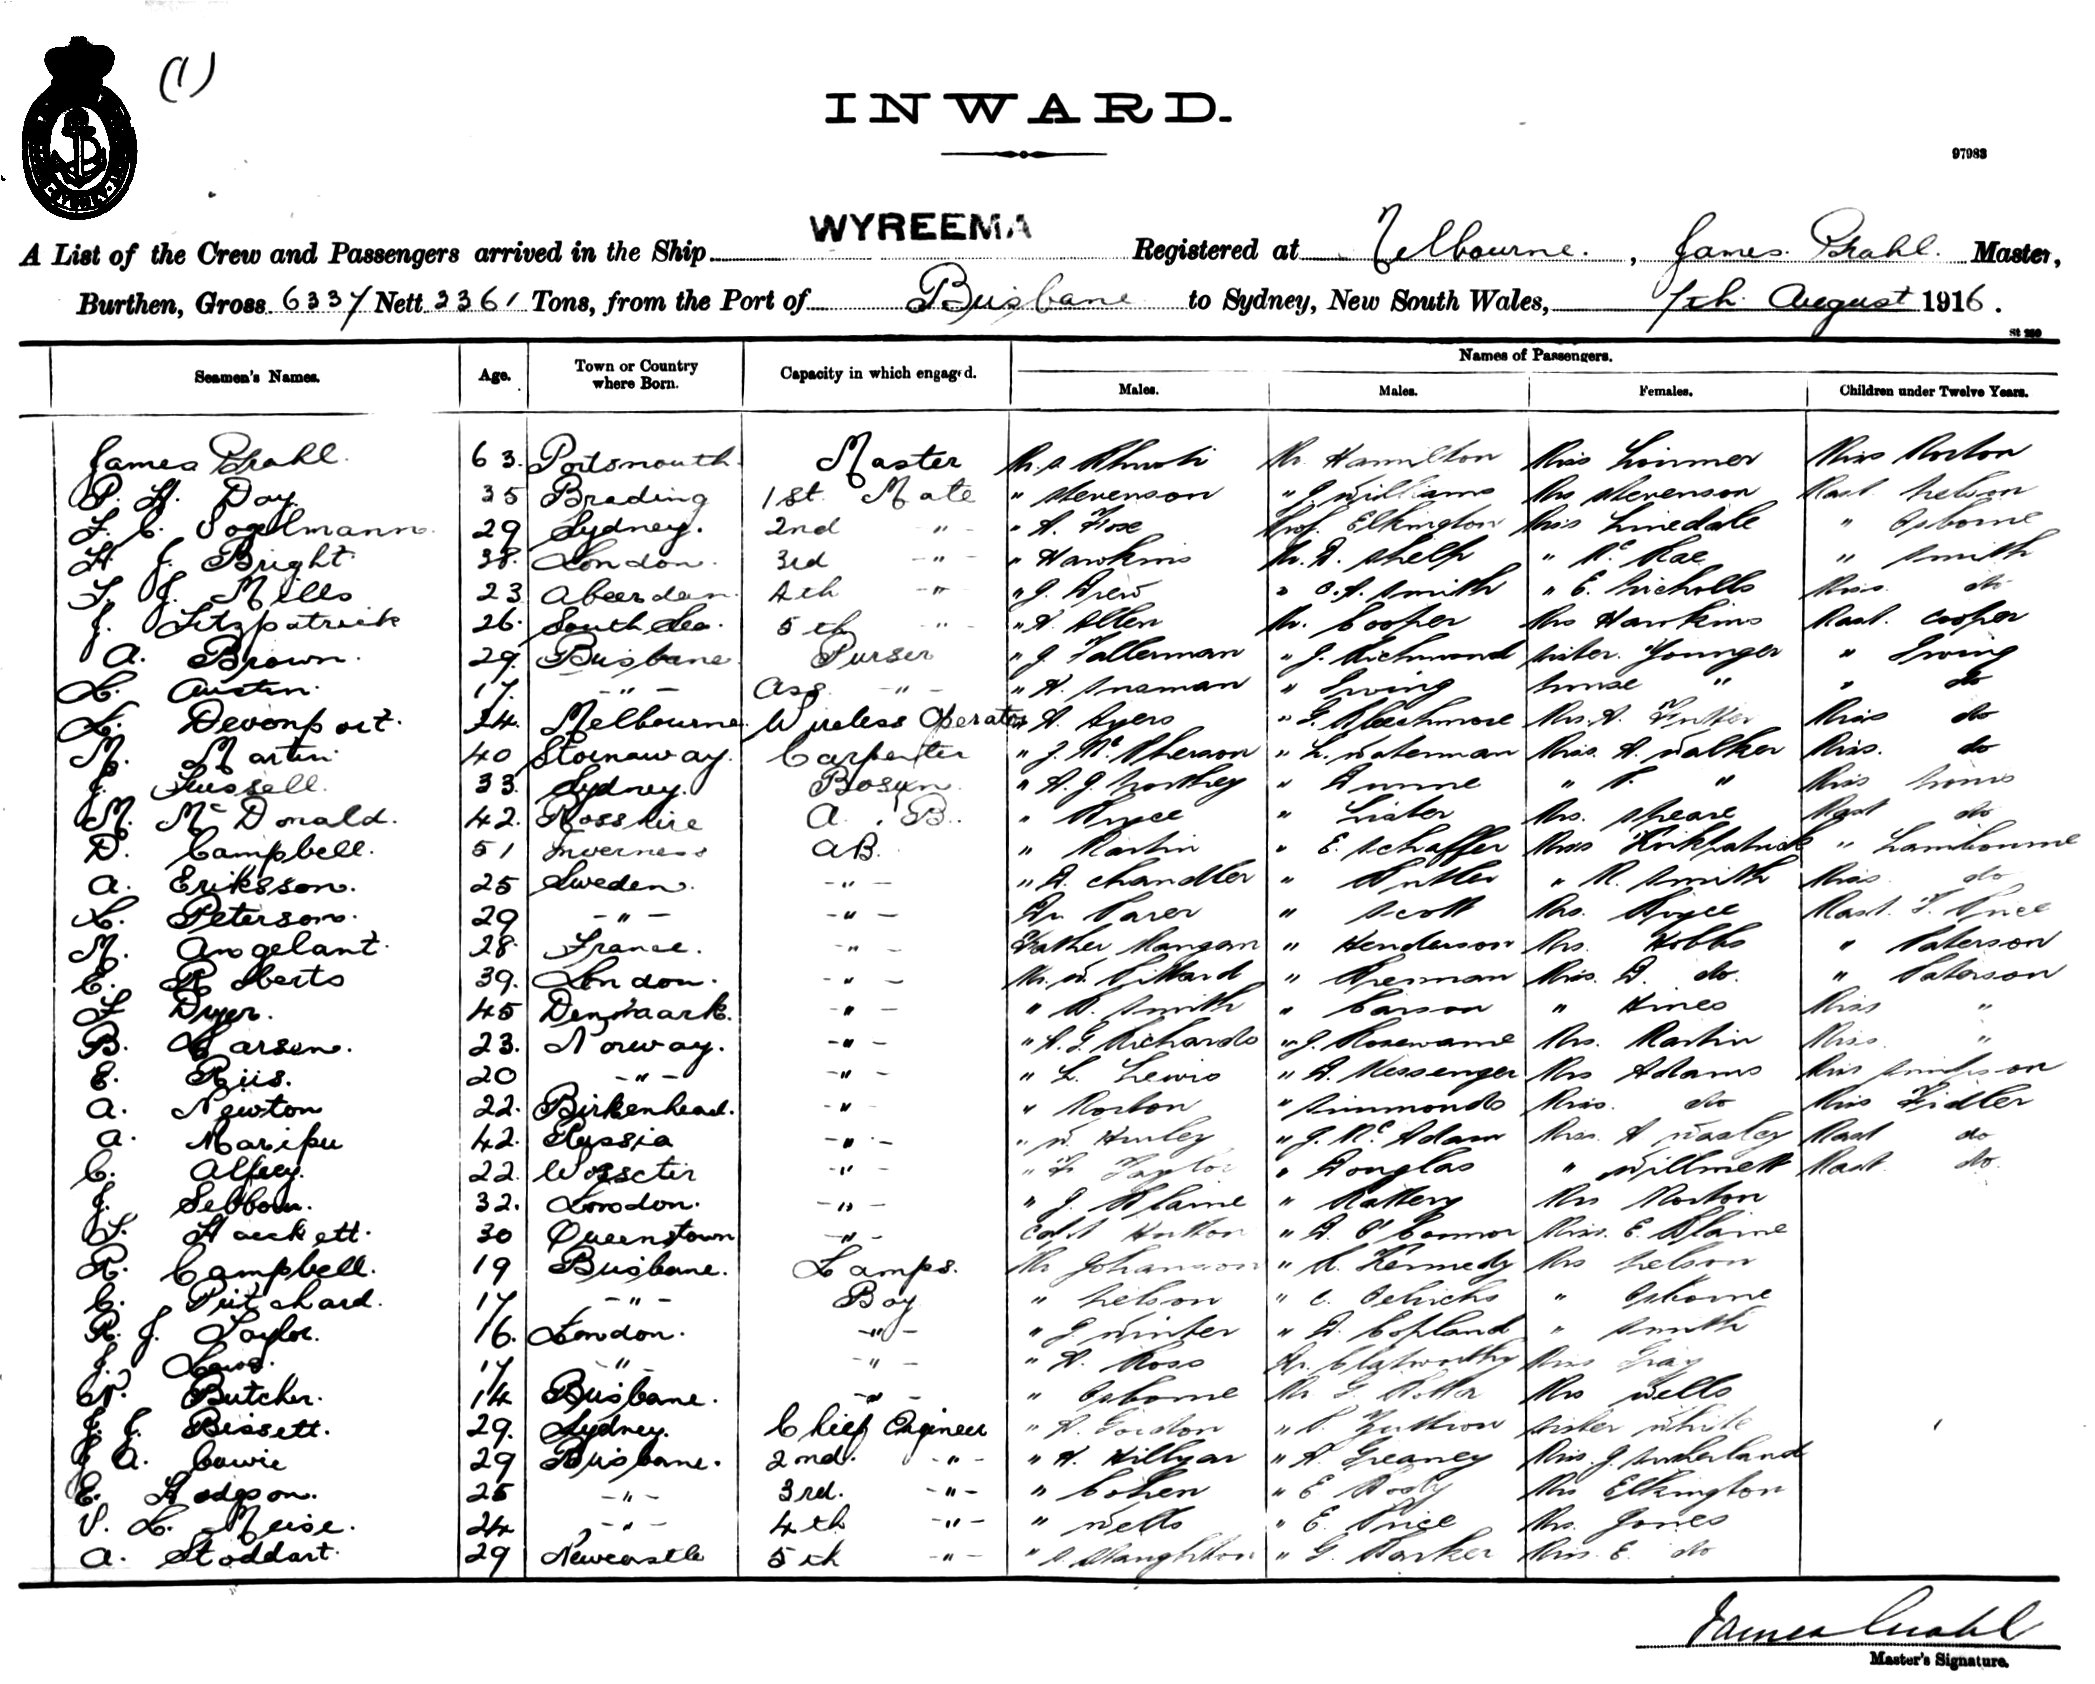 (1)
INWARD.
97983
A List of the Crew and Passengers arrived in the Ship WYREEMA Registered at Melbourne. , James Grahl. Master,
Burthen, Gross 6337 Nett 3361 Tons, from the Port of Brisbane to Sydney, New South Wales, 7th August 1916.
St 250
Seamen's Names. Age. Town or Country where Born. Capacity in which engaged. Names of Passengers.
Males. Males. Females. Children under Twelve Years.
James Grahl. 63. Portsmouth. Master Mr Hamilton Miss Lorimer Miss Norton
P. H. Day 35 Brading 1st. Mate " Stevenson " J Williams Mrs Stevenson Mast. Nelson
F. C. Vogelmann. 29 Sydney. 2nd -"- " A. Fose Prof. Elkington Miss Linedale " Osborne
H J. Bright. 38. London. 3rd -"- " Hawkins Mr. D. Shelp " Mc Rae " Smith
F. J. Mills 23 Abeerdeen. 4th -"- " J. Drew " C.A. Smith " E. Nicholls Miss. do
J. Fitzpatrick 26. South Sea. 5th -"- " A. Allen Mr. Cooper Mrs Hawkins Mast. Cooper
A. Brown. 29. Brisbane. Purser " J. Fallerman " J. Richmond Sister. Younger " Irving
L. Austin. 17. -"- Ass. -"- " H. Inaman " Irving Nurse " " do
L. Devonport. 24. Melbourne. Wireless Operator " A. Ayers Miss do
M. Martin 40 Stornaway. Carpenter " J. Mc Pherson " L. Waterman Miss. A. Walker Miss. do
J. Russell. 33. Sydney. Bosun " A. J. Northey " Dunne " P. " Miss
M. Mc Donald. 42. Rossshire A. B. " Bryce " Lister Mrs. Speare Mast do
D. Campbell. 51 Inverness AB. " Martin " E. Schaffer Miss Kirkpatrick " Lambourne
A. Eriksson. 25 Sweden. -"- " A. Chandler " Butler " M. Smith Miss. do
L. Peterson. 29 -"- -"- Dr Parer " Scott Mrs. Bryce Mast. F. Price
M. Angelant. 28. France. -"- Father Mangan " Henderson Mrs. Hobbs " Paterson
E. Roberts 39. London. -"- Mr. W. Pittard " Brennan Miss. D. do. " Paterson
F Dryer. 45 Denmaark. -"- " W. Smith " Carson " Hines Miss "
B. Larsen. 23. Norway. -"- " A. G. Richards " J. Rosewarne Mrs. Martin Miss. "
E. Riis. 20 -"- -"- " L. Lewis " D. Messenger Mrs Adams Miss
A. Newton 22. Birkenhead. -"- " Norton " Simmonds Miss. do Miss Fidler
A. Maripu 42. Russia -"- " W. Hurley " J. Mc Adam Miss. A Wasley Mast do
C. Alfrey. 22. Wosseter -"- " F. Taylor " Douglas " Willmett Mast. do.
J. Sebborn. 32. London. -"- " J. Blaine " Rattery Mrs Norton
S. Hackett. 30 Queenstown -"- Capt Hutton " D. O'Connor Miss. E. Blaine
R. Campbell. 19 Brisbane. Lamps. Mr Johanson " A. Kennedy Mrs Nelson
C. Pritchard. 17 -"- Boy " Nelson " C. Oelrichs " Osborne
R. J. Taylor. 16. London. -"- " J. Winter " D. Copland " Smith
J. Laws. 17 -"- -"- " A. Ross Dr. Clatworthy Miss Gray
N. Butcher. 14 Brisbane. -"- " Osborne Mr G. Mrs Wells
J. J. Bissett. 29. Sydney. Chief Engineer " A. Gordon Sister White
J A. Cowie 29 Brisbane. 2nd. -"- " H. Hillyar " A. Greaney Miss. J. Sutherland
E. Hodgson. 25 -"- 3rd. -"- " Cohen " E Mrs Elkington
V. L. Meise. 24 -"- 4th -"- " Wells " E. Price Mrs. Jones
A. Stoddart. 29 Newcastle 5th -"- " S. Naughton " G. Parker Miss. E. do
James Grahl
Master's Signature.